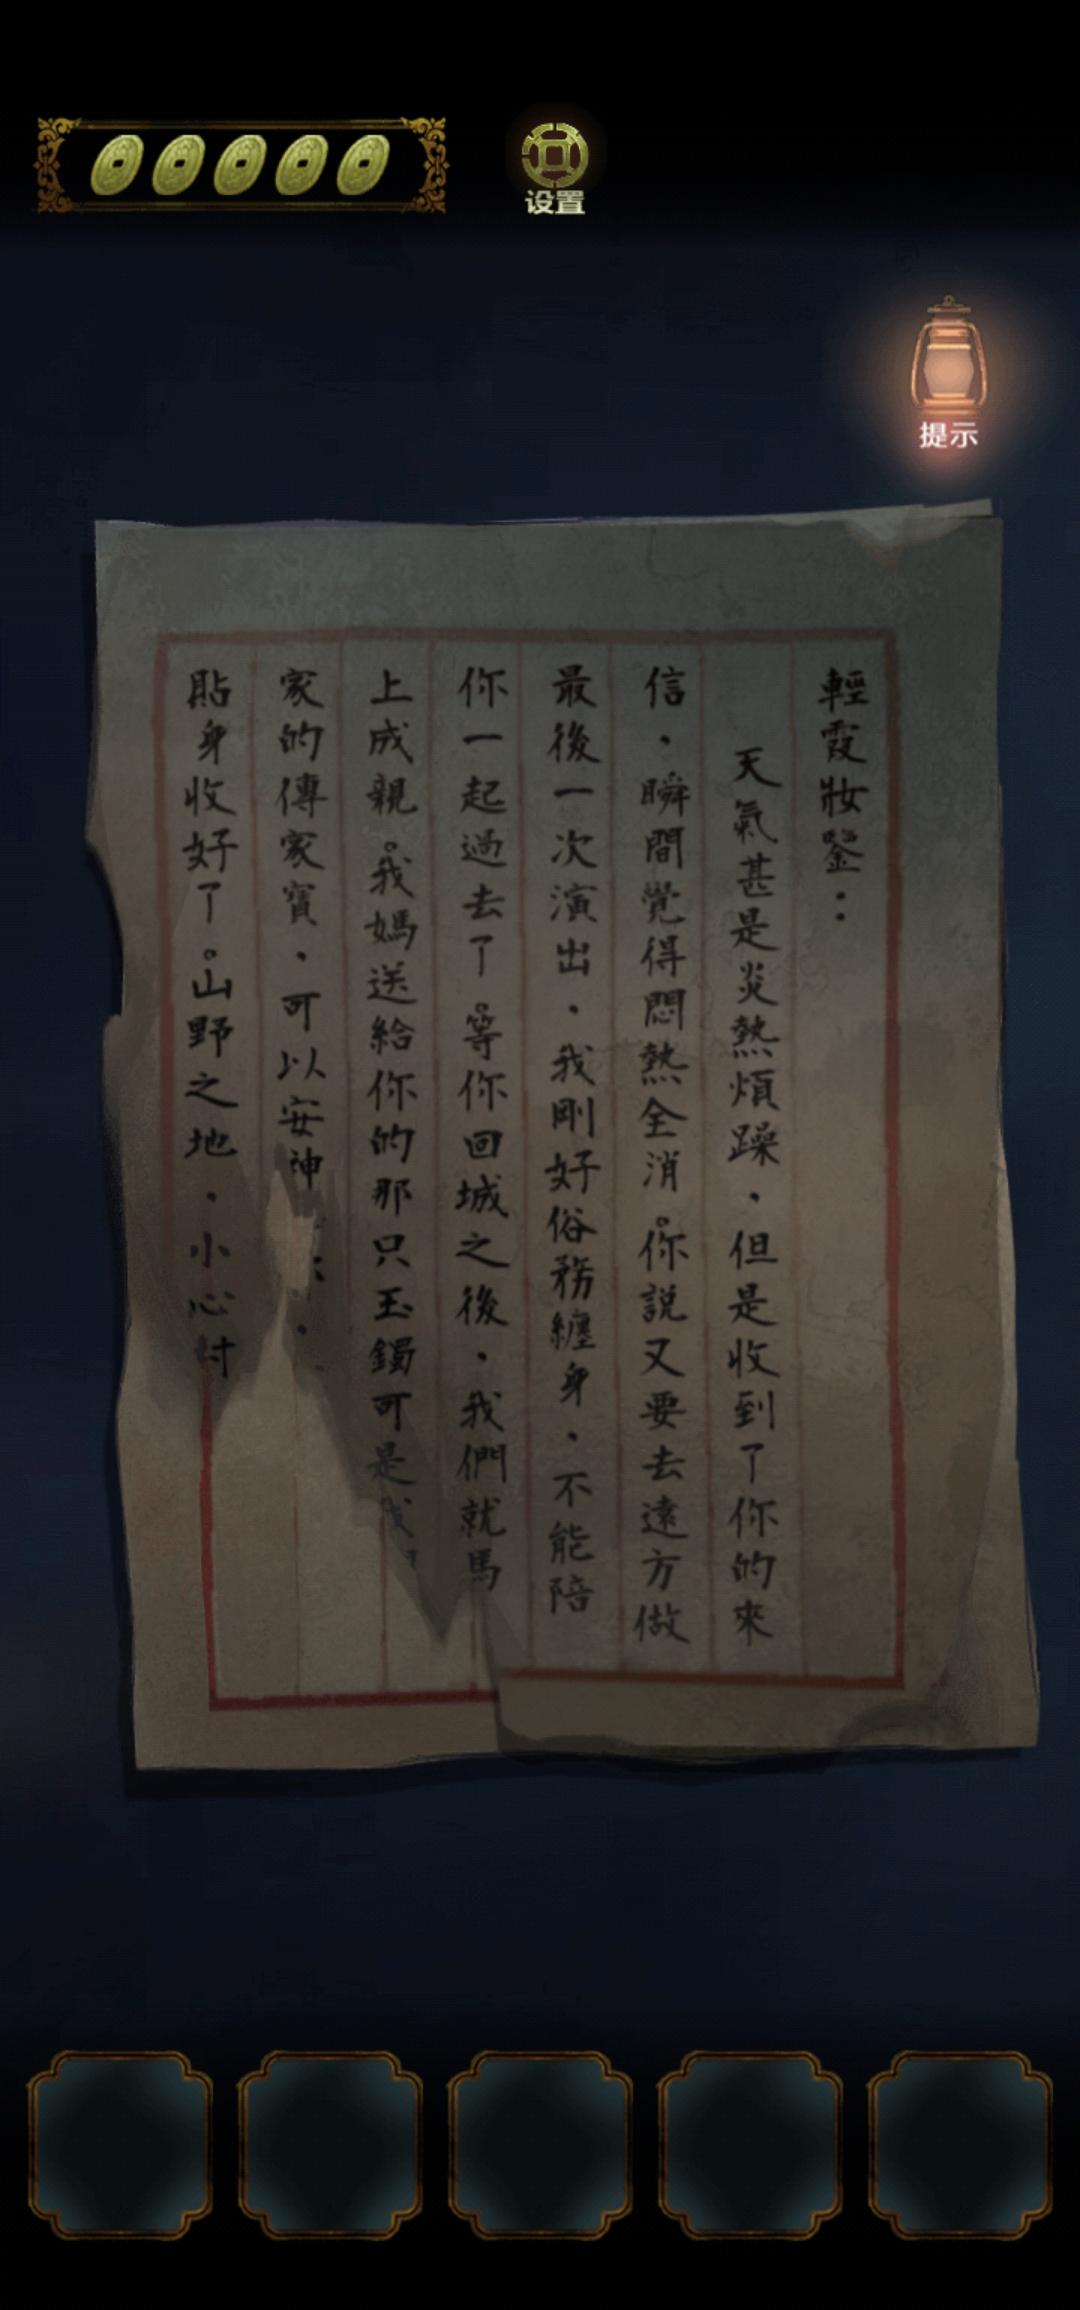 设置
提示
輕霞妝鑒：
天氣甚是炎熱煩躁，但是收到了你的來
信，瞬間覺得悶熱全消。你説又要去遠方做
最後一次演出，我剛好俗務纏身，不能陪
你一起過去了。等你回城之後，我們就馬
上成親。我媽送給你的那只玉鐲可是我
家的傳家寶，可以安神
貼身收好了。山野之地，小心